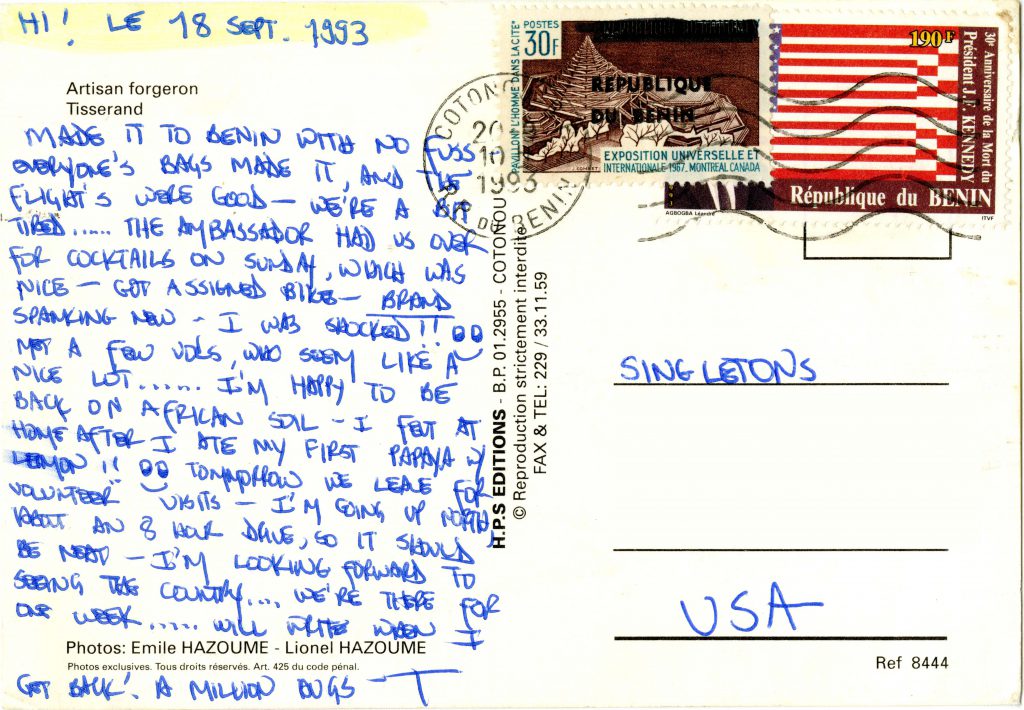 HI! LE 18 SEPT. 1993
Artisan forgeron
Tisserand
MADE IT TO BENIN WITH NO FUSS
EVERYONE'S BAGS MADE IT, AND THE
FLIGHT'S WERE GOOD – WE'RE A BIT
TIRED..... THE AMBASSADOR HAD US OVER
FOR COCKTAILS ON SUNDAY, WHICH WAS
NICE – GOT ASSIGNED BIKE – BRAND
SPANKING NEW – I WAS SHOCKED!!
MET A FEW VOLS, WHO SEEM LIKE A
NICE LOT...... I'M HAPPY TO BE
BACK ON AFRICAN SOIL – I FELT AT
HOME AFTER I ATE MY FIRST PAPAYA W/
LEMON!! TOMMORROW WE LEAVE FOR
VOLUNTEER VISITS – I'M GOING UP NORTH,
ABOUT AN 8 HOUR DRIVE, SO IT SHOULD
BE NEAT – I'M LOOKING FORWARD TO
SEEING THE COUNTRY.... WE'RE THERE FOR
ONE WEEK..... WILL WRITE WHEN I
Photos: Emile HAZOUME - Lionel HAZOUME
Photos exclusives. Tous droits réservés. Art. 425 du code pénal.
GET BACK! A MILLION HUGS – T
H.P.S EDITIONS - B.P. 01.2955 - COTONOU
© Reproduction strictement interdite
FAX & TEL: 229 / 33.11.59
POSTES
30F
PAVILLON L'HOMME DANS LA CITÉ
REPUBLIQUE
DU BENIN
EXPOSITION UNIVERSELLE ET
INTERNATIONALE 1967. MONTREAL CANADA
COMBET
COTONOU
1993
DU BENIN
190 F
30e Anniversaire de la Mort du
Président J.F. KENNEDY
République du BENIN
AGBOGBA Léandre
ITVF
SINGLETONS
USA
Ref 8444